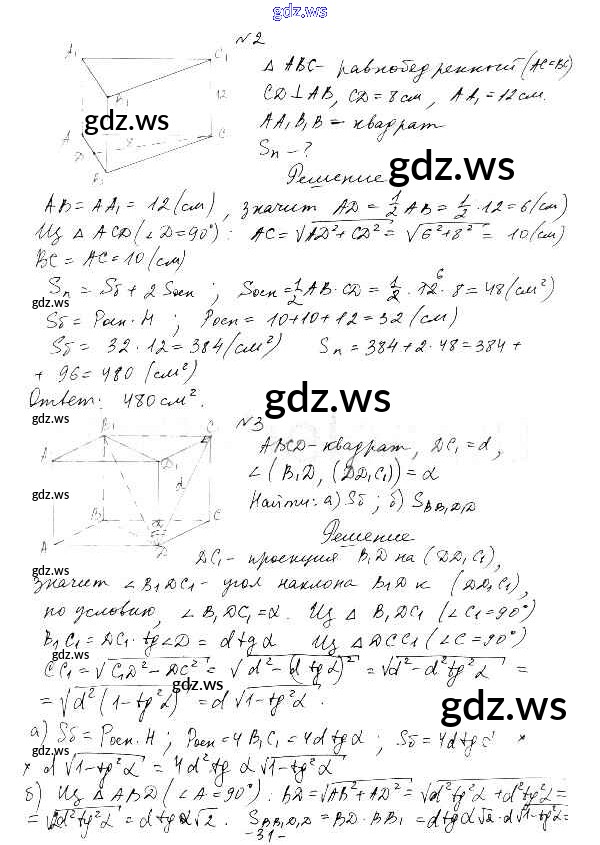 gdz.ws
№2
A₁ C₁ B₁ 12 A D 8 B C
△ABC - равнобедренный (AC=BC)
CD⊥AB, CD=8см, AA₁=12см.
AA₁B₁B - квадрат
Sп - ?
gdz.ws
gdz.ws
Решение
AB=AA₁=12(см), значит AD=1/2 AB=1/2·12=6(см)
Из △ACD(∠D=90°): AC=√AD²+CD²=√6²+8²=10(см)
BC=AC=10(см)
Sп=Sб+2Sосн; Sосн=1/2 AB·CD=1/2·12·8=48(см²)
gdz.ws
Sб=Pосн·H; Pосн=10+10+12=32(см)
Sб=32·12=384(см²) Sп=384+2·48=384+
+96=480(см²)
gdz.ws
Ответ: 480см².
gdz.ws
№3
B₁ C₁ A D₁ d B C A D
ABCD-квадрат, DC₁=d,
∠(B₁D,(DD₁C₁))=α
gdz.ws
Найти: а) Sб; б) S_BB₁D₁D
Решение
DC₁-проекция B₁D на (DD₁C₁)
gdz.ws
значит ∠B₁DC₁-угол наклона B₁D к (DD₁C₁),
по условию, ∠B₁DC₁=α. Из △B₁DC₁(∠C₁=90°)
B₁C₁=DC₁·tg∠D=dtgα Из △DCC₁(∠C=90°)
gdz.ws
CC₁=√C₁D²-DC²=√d²-(dtgα)²=√d²-d²tg²α=
gdz.ws
=√d²(1-tg²α)=d√1-tg²α.
gdz.ws
а) Sб=Pосн·H; Pосн=4B₁C₁=4dtgα; Sб=4dtgα ×
gdz.ws
× d√1-tg²α=4d²tgα√1-tg²α
б) Из △ABD(∠A=90°): BD=√AB²+AD²=√d²tg²α+d²tg²α=
gdz.ws
=√2d²tg²α=dtgα√2. S_BB₁D₁D=BD·BB₁=dtgα√2·d√1-tg²α=
-31-